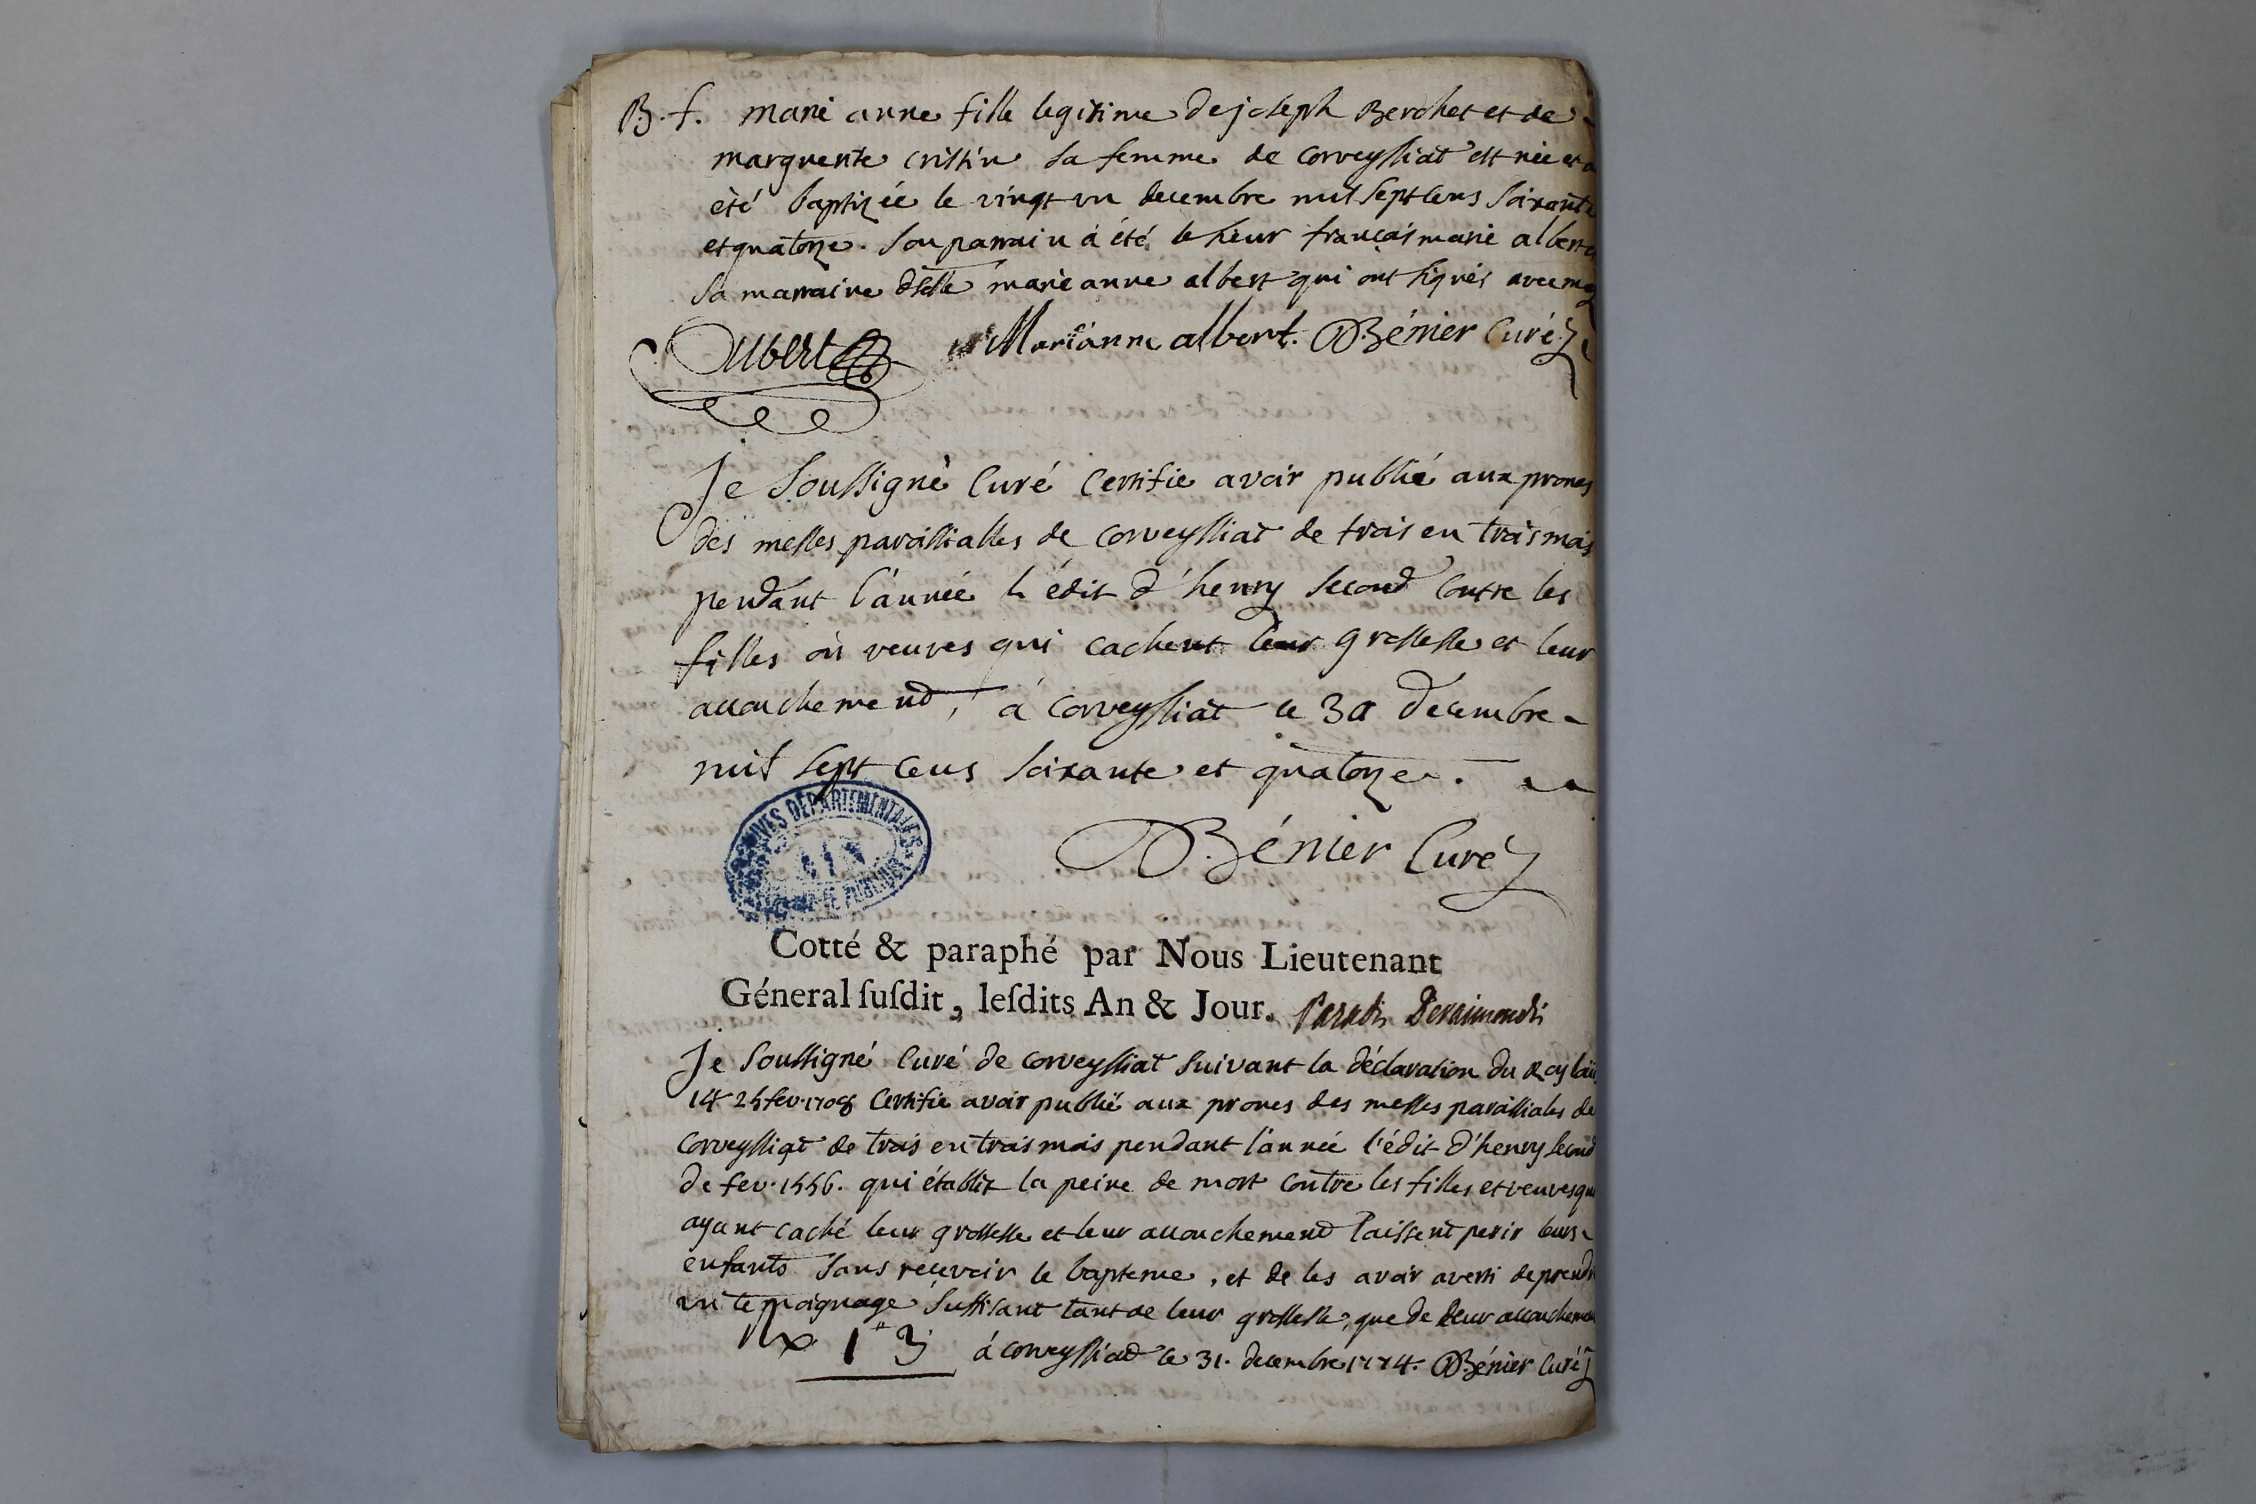 B. f. marie anne fille legitime de joseph Berchet et de
marguerite cristin sa femme de corveyssiat est née et a
été baptizée le vingt un decembre mil sept cens soixante
et quatorze. son parrain à été le sieur françois marie albert
sa marraine dslle marie anne albert qui ont signés avec moy
Albert Marianne albert. Bénier Curé
Je soussigné Curé Certifie avoir publié aux prones
des messes paroissialles de corveyssiat de trois en trois mois
pendant l'année l'édit d'henry second contre les
filles où veuves qui cachent leur grossesse et leur
accouchement, à corveyssiat ce 30 decembre
mil sept cens soixante et quatorze.
ARCHIVES DÉPARTEMENTALES
AIN
Bénier Curé
Cotté & paraphé par Nous Lieutenant
Géneral ſuſdit, leſdits An & Jour. Paradis Deraimondis
Je soussigné Curé de corveyssiat suivant la déclaration du Roy Loüis
14 25 fev. 1708 Certifie avoir publié aux prones des messes paroissiales de
corveyssiat de trois en trois mois pendant l'année l'édit d'henry second
de fev. 1556. qui établit la peine de mort contre les filles et veuves qui
ayant caché leur grossesse et leur accouchement laissent perir leurs
enfants sans recevoir le bapteme, et de les avoir averti de prendre
un temoignage suffisant tant de leur grossesse, que de leur accouchement
à corveyssiat ce 31. decembre 1774. Bénier Curé